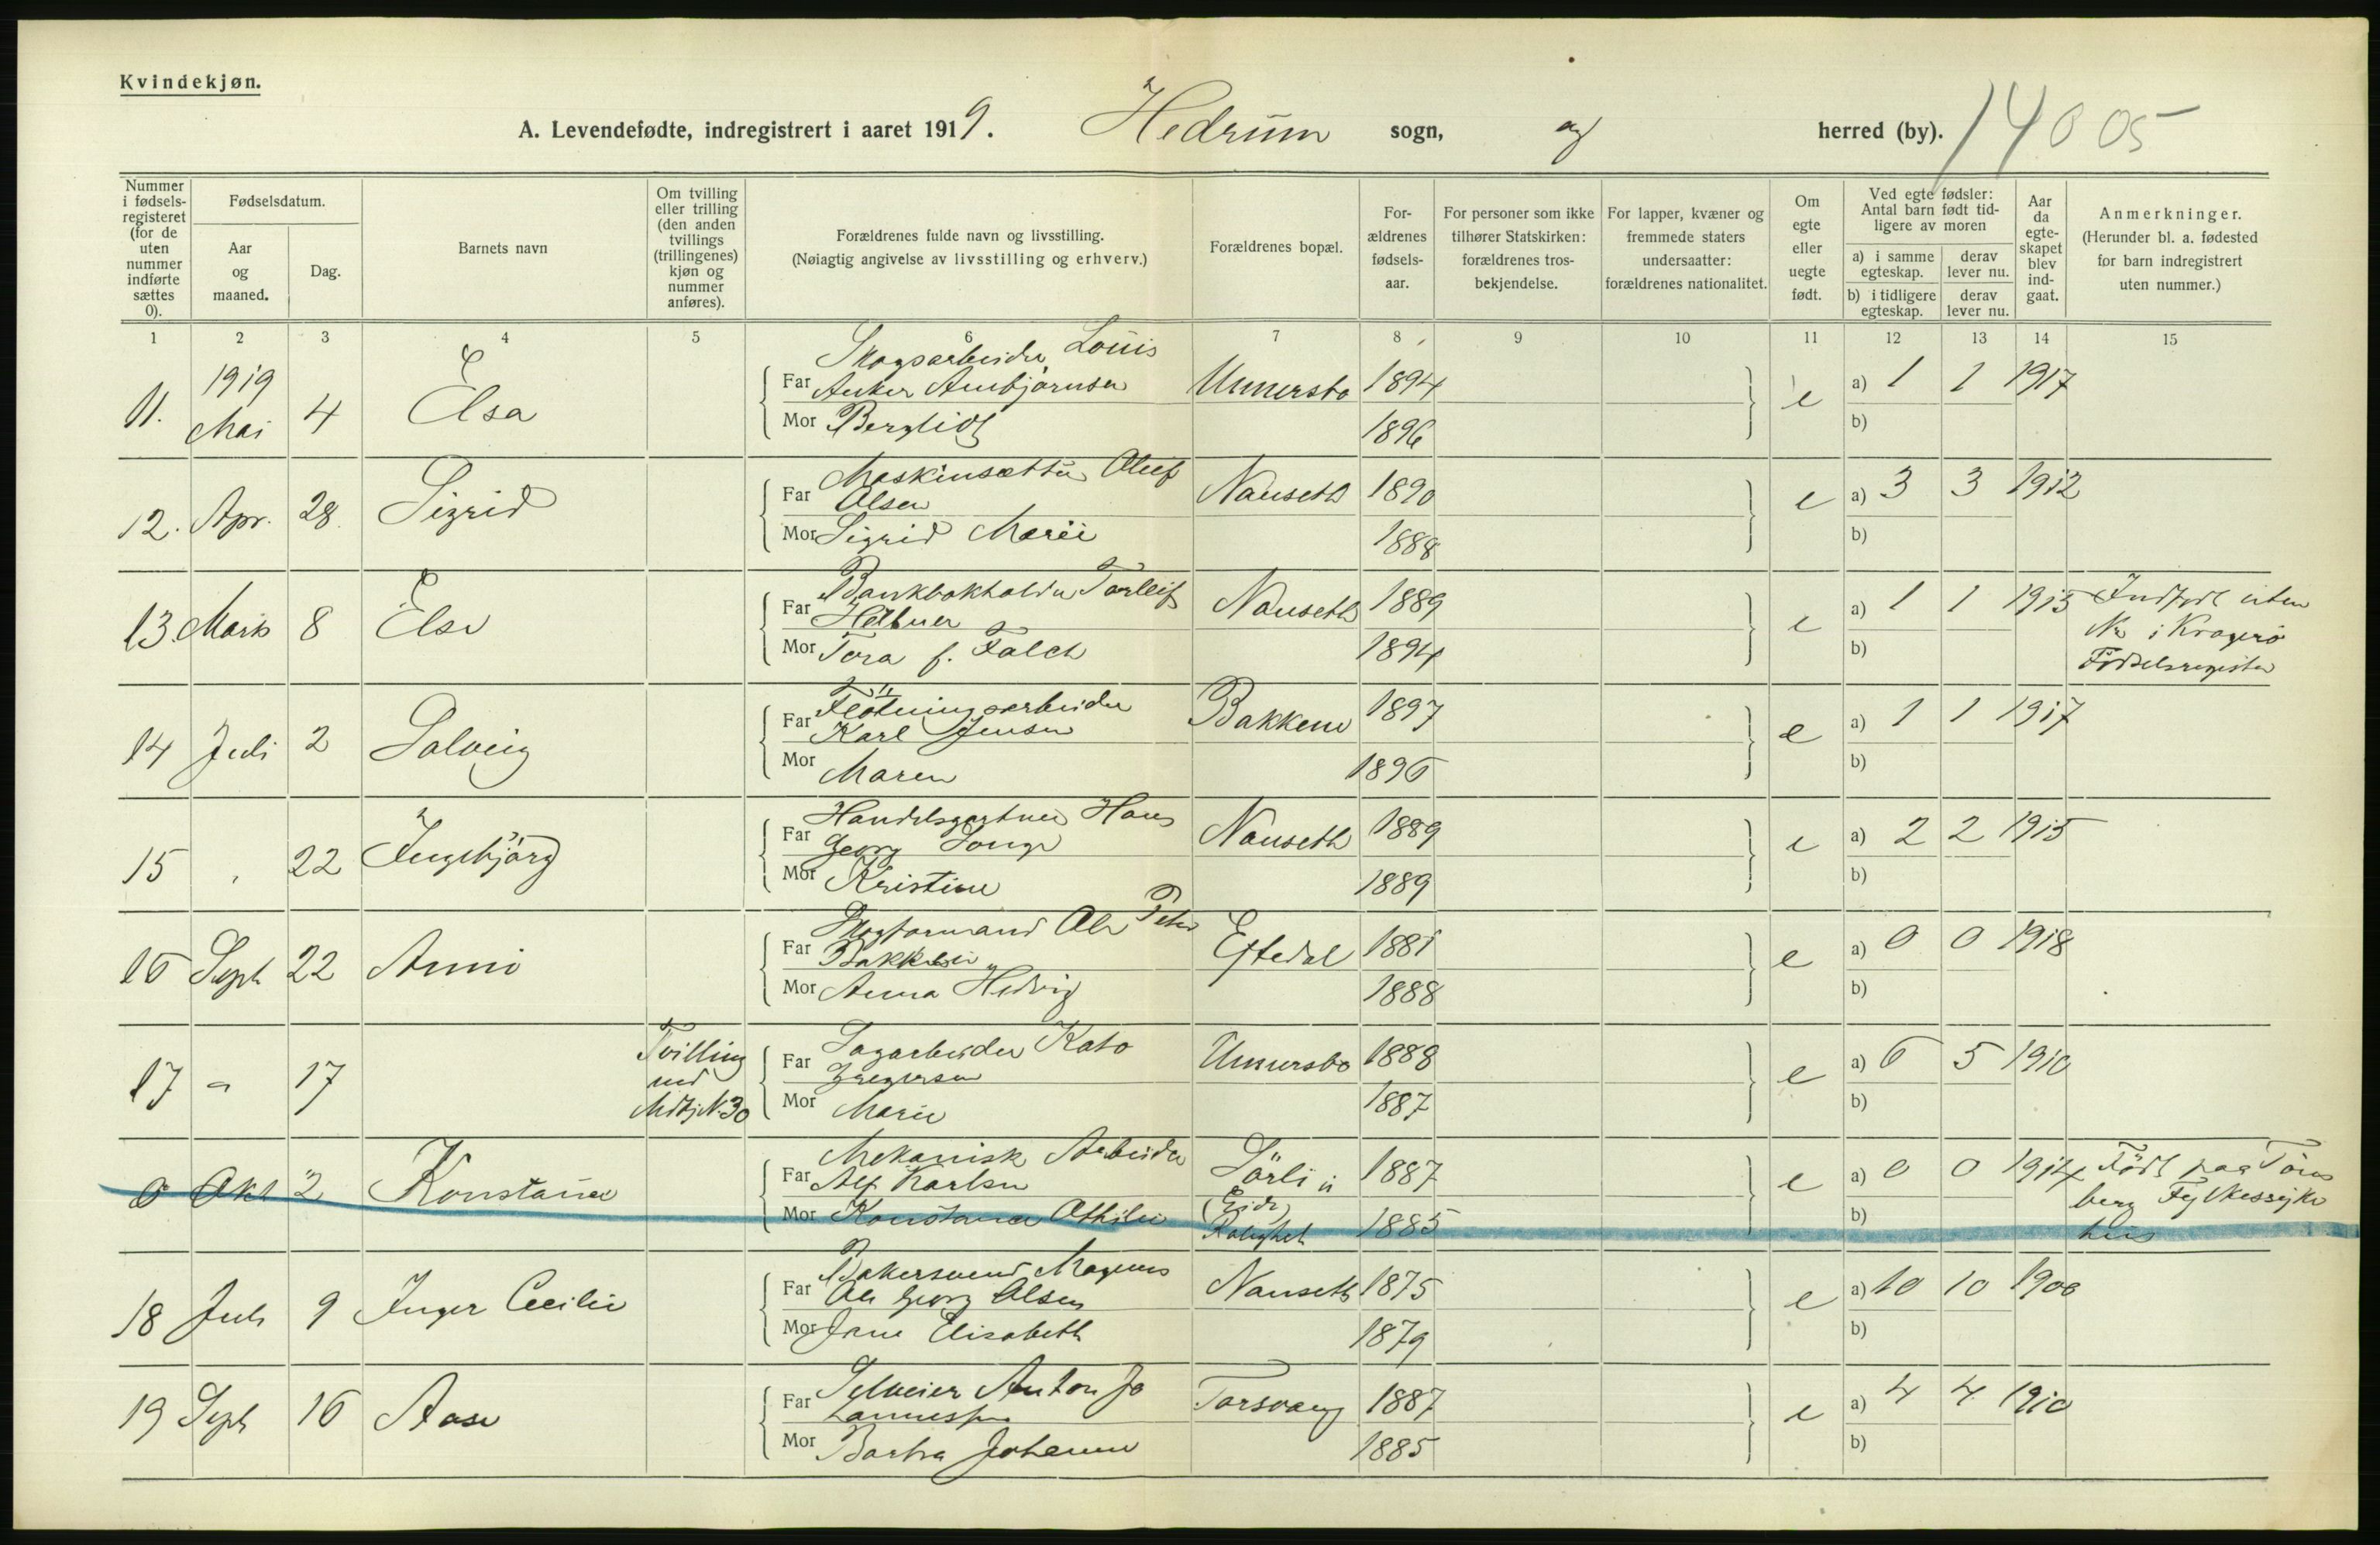 Kvindekjøn.
A. Levendefødte, indregistrert i aaret 1919. Hedrum sogn, og herred (by). 14005
Nummer i fødsels-registeret (for de uten nummer indførte sættes 0).
Fødselsdatum.
Aar og maaned.
Dag.
Barnets navn
Om tvilling eller trilling (den anden tvillings (trillingenes) kjøn og nummer anføres).
Forældrenes fulde navn og livsstilling.
(Nøiagtig angivelse av livsstilling og erhverv.)
Forældrenes bopæl.
For-ældrenes fødsels-aar.
For personer som ikke tilhører Statskirken: forældrenes tros-bekjendelse.
For lapper, kvæner og fremmede staters undersaatter: forældrenes nationalitet.
Om egte eller uegte født.
Ved egte fødsler: Antal barn født tid-ligere av moren
a) i samme egteskap. derav lever nu.
b) i tidligere egteskap. derav lever nu.
Aar da egte-skapet blev ind-gaat.
Anmerkninger.
(Herunder bl. a. fødested for barn indregistrert uten nummer.)
1 2 3 4 5 6 7 8 9 10 11 12 13 14 15
Skogsarbeider Louis
11. 1919 Mai 4 Elsa Far Anker Arnbjørnsen Unnersbo 1894 e a) 1 1 1917
Mor Bergliot 1896 b)
Maskinsætter Oluf
12. Apr. 28. Sigrid Far Olsen Nanseth 1890 e a) 3 3 1912
Mor Sigrid Marie 1888 b)
Bankbokholder Torleif
13 Mars 8 Else Far Nanseth 1889 e a) 1 1 1915 Indført uten
Mor Tora f. Falch 1894 b) Nr i Kragerö
Födselsregister
Flötningsarbeider
14 Juli 2 Solveig Far Karl Jensen Bakkene 1897 e a) 1 1 1917
Mor Maren 1896 b)
Handelsgartner Hans
15 " 22 Ingebjörg Far Georg Nanseth 1889 e a) 2 2 1915
Mor Kristine 1889 b)
Skogformand Ole Peter
16 Sept 22 Anni Far Bakken Eftedal 1881 e a) 0 0 1918
Mor Anna Hedvig 1888 b)
Tvilling Sagarbeider Kato
17 " 17 med Far Gregersen Unnersbo 1888 e a) 6 5 1910
Mdkj N. 30 Mor Marie 1887 b)
Mekanisk Arbeider
0 Okt 2 Konstance Far Alf Karlsen Lörli i 1887 e a) 0 0 1914 Födt paa Töns
Mor Konstance Othilie (Eide) 1885 b) berg Fylkessyke
Rolighet hus
Bakersvend Magnus
18 Juli 9 Inger Cecilie Far Ole Georg Olsen Nanseth 1875 e a) 10 10 1900
Mor Jane Elisabeth 1879 b)
Selveier Anton Jo
19 Sept 16 Aase Far hannesen Torsvang 1887 e a) 4 4 1910
Mor Barbra Johanne 1885 b)